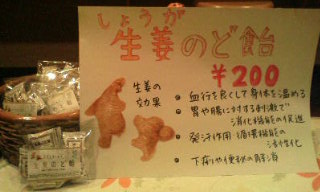 しょうが
生姜のど飴
¥200
生姜の
効果
• 血行を良くして身体を温める
• 胃や腸に対する刺激で
消化機能の促進
• 発汗作用・循環機能の
活性化
• 下痢や便秘の解消
のど飴